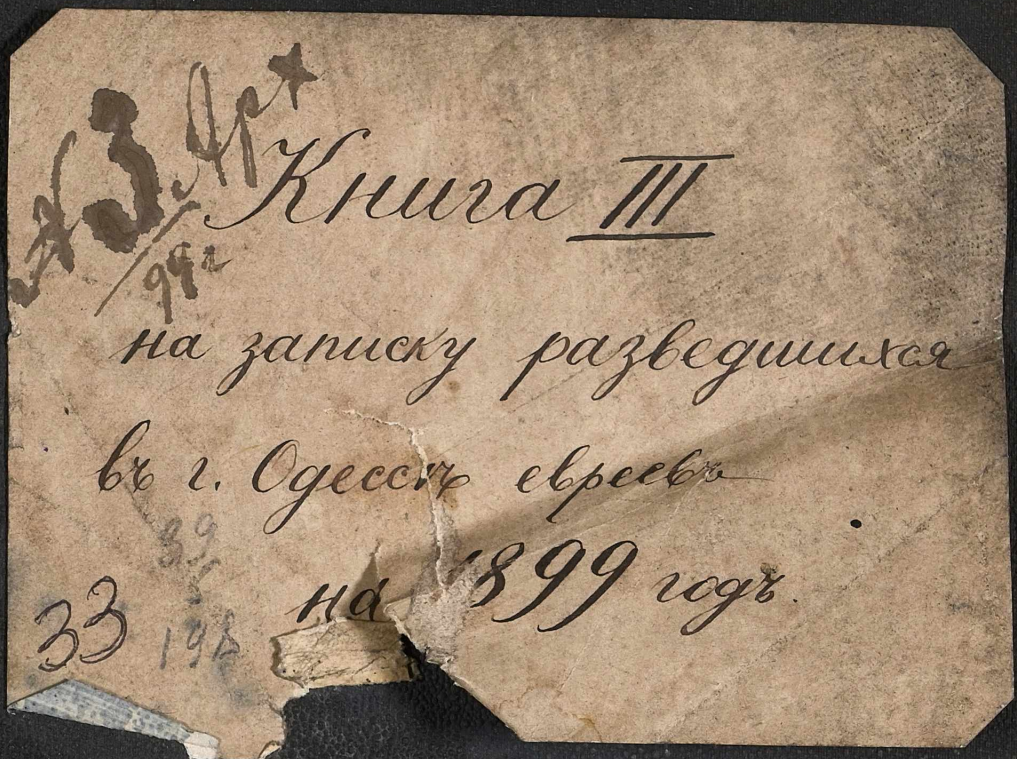 № 3 Яр
99 г
Книга III
на записку разведшихся
въ г. Одессѣ евреевъ
на 1899 годъ.
39
33
198